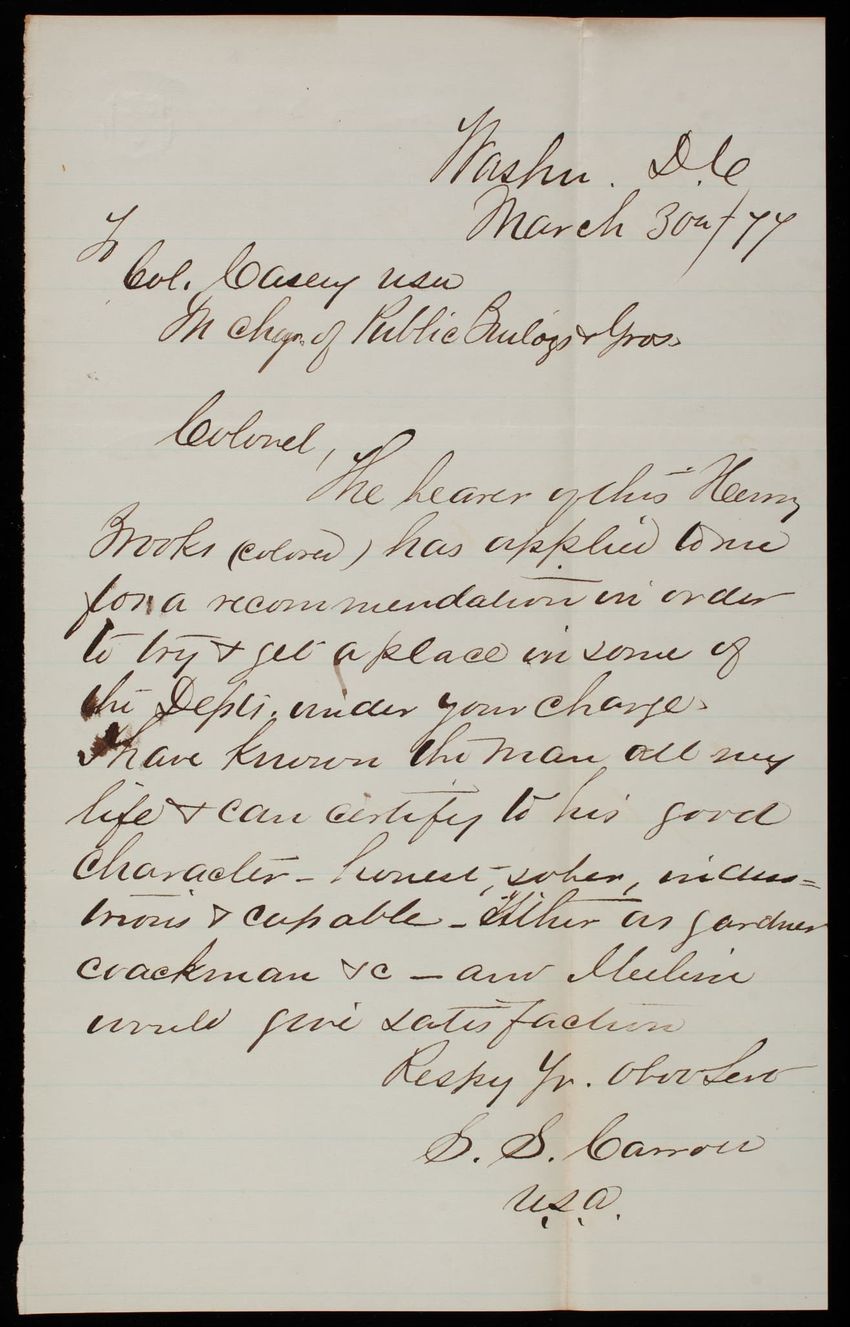 Washn. D.C
March 30th/77
To
Col. Casey USA
In Chge. of Public Buildgs & Gros.
Colonel,
The bearer of this Henry
Brooks (colored) has applied to me
for a recommendation in order
to try & get a place in some of
the Depts. under your charge.
I have known the man all my
life & can certify to his good
character - honest, sober, indus=
trious & capable - Either as gardner
coachman &c - and I believe
would give satisfaction
Respy Yr. Obdt Servt
S. S. Carroll
U.S.A.